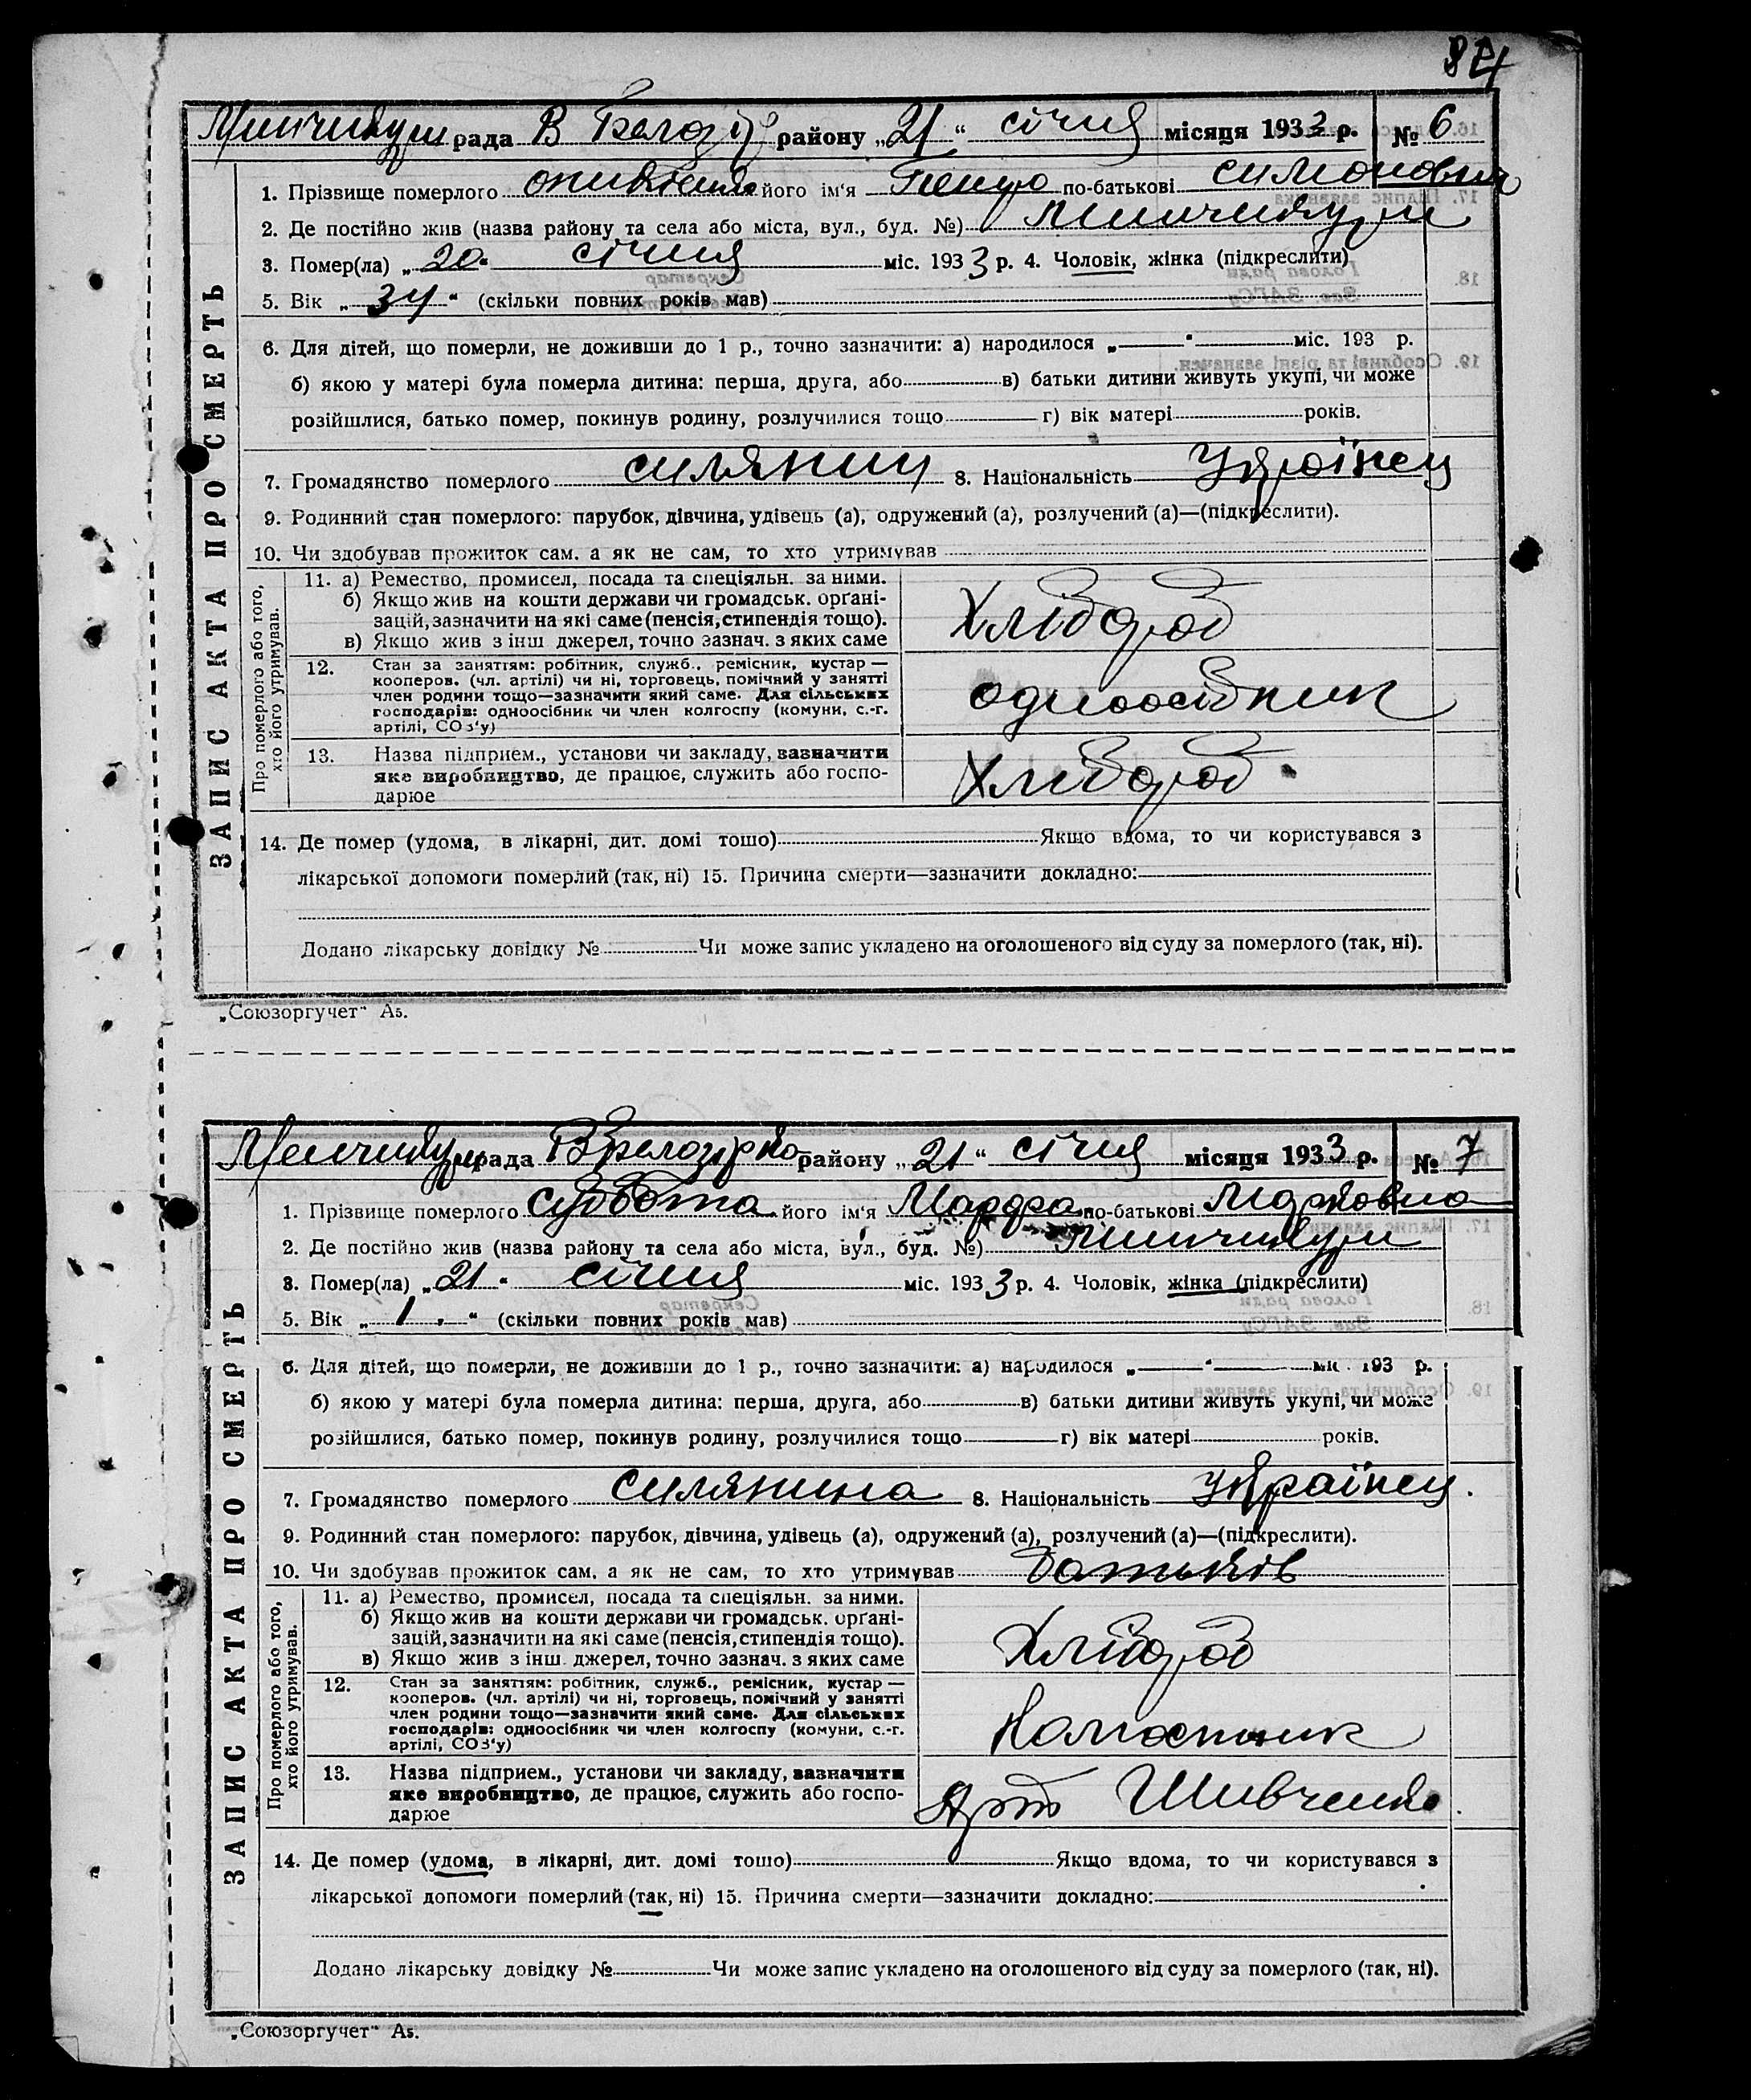 84
рада В Белозір району „21“ січня місяця 1933 р. № 6
1. Прізвище померлого його ім'я по-батькові Симонович
2. Де постійно жив (назва району та села або міста, вул., буд. №) Минчикури
3. Помер(ла) „20“ січня міс. 1933 р. 4. Чоловік, жінка (підкреслити)
5. Вік „34“ (скільки повних років мав)
6. Для дітей, що померли, не доживши до 1 р., точно зазначити: а) народилося „ “ міс. 193 р.
б) якою у матері була померла дитина: перша, друга, або в) батьки дитини живуть укупі, чи може
розійшлися, батько помер, покинув родину, розлучилися тощо г) вік матері років.
7. Громадянство померлого силянин 8. Національність Українец
9. Родинний стан померлого: парубок, дівчина, удівець (а), одружений (а), розлучений (а)—(підкреслити).
10. Чи здобував прожиток сам, а як не сам, то хто утримував
ЗАПИС АКТА ПРО СМЕРТЬ
Про померлого або того,
хто його утримував.
11. а) Ремество, промисел, посада та спеціяльн. за ними.
б) Якщо жив на кошти держави чи громадськ. орґані-
зацій, зазначити на які саме (пенсія, стипендія тощо).
в) Якщо жив з інш джерел, точно зазнач. з яких саме
Хлібороб
12. Стан за заняттям: робітник, служб., ремісник, кустар —
кооперов. (чл. артілі) чи ні, торговець, помічний у занятті
член родини тощо—зазначити який саме. Для сільських
господарів: одноосібник чи член колгоспу (комуни, с.-г.
артілі, СОЗ'у)
одноосібник
13. Назва підприєм., установи чи закладу, зазначити
яке виробництво, де працює, служить або госпо-
дарює
Хлібороб
14. Де помер (удома, в лікарні, дит. домі тощо) Якщо вдома, то чи користувався з
лікарської допомоги померлий (так, ні) 15. Причина смерти—зазначити докладно:
Додано лікарську довідку № Чи може запис укладено на оголошеного від суду за померлого (так, ні).
„Союзоргучет“ А5.
рада В Белозірка району „21“ січня місяця 1933 р. № 7
1. Прізвище померлого Субота його ім'я Марфа по-батькові Марковна
2. Де постійно жив (назва району та села або міста, вул., буд. №) Минчикури
3. Помер(ла) „21“ січня міс. 1933 р. 4. Чоловік, жінка (підкреслити)
5. Вік „1“ (скільки повних років мав)
6. Для дітей, що померли, не доживши до 1 р., точно зазначити: а) народилося „ “ міс. 193 р.
б) якою у матері була померла дитина: перша, друга, або в) батьки дитини живуть укупі, чи може
розійшлися, батько помер, покинув родину, розлучилися тощо г) вік матері років.
7. Громадянство померлого силянина 8. Національність Українец.
9. Родинний стан померлого: парубок, дівчина, удівець (а), одружений (а), розлучений (а)—(підкреслити).
10. Чи здобував прожиток сам, а як не сам, то хто утримував батьків
ЗАПИС АКТА ПРО СМЕРТЬ
Про померлого або того,
хто його утримував.
11. а) Ремество, промисел, посада та спеціяльн. за ними.
б) Якщо жив на кошти держави чи громадськ. орґані-
зацій, зазначити на які саме (пенсія, стипендія тощо).
в) Якщо жив з інш. джерел, точно зазнач. з яких саме
Хлібороб
12. Стан за заняттям: робітник, служб., ремісник, кустар —
кооперов. (чл. артілі) чи ні, торговець, помічний у занятті
член родини тощо—зазначити який саме. Для сільських
господарів: одноосібник чи член колгоспу (комуни, с.-г.
артілі, СОЗ'у)
Колгоспник
13. Назва підприєм., установи чи закладу, зазначити
яке виробництво, де працює, служить або госпо-
дарює
Арт Шивченко.
14. Де помер (удома, в лікарні, дит. домі тощо) Якщо вдома, то чи користувався з
лікарської допомоги померлий (так, ні) 15. Причина смерти—зазначити докладно:
Додано лікарську довідку № Чи може запис укладено на оголошеного від суду за померлого (так, ні).
„Союзоргучет“ А5.